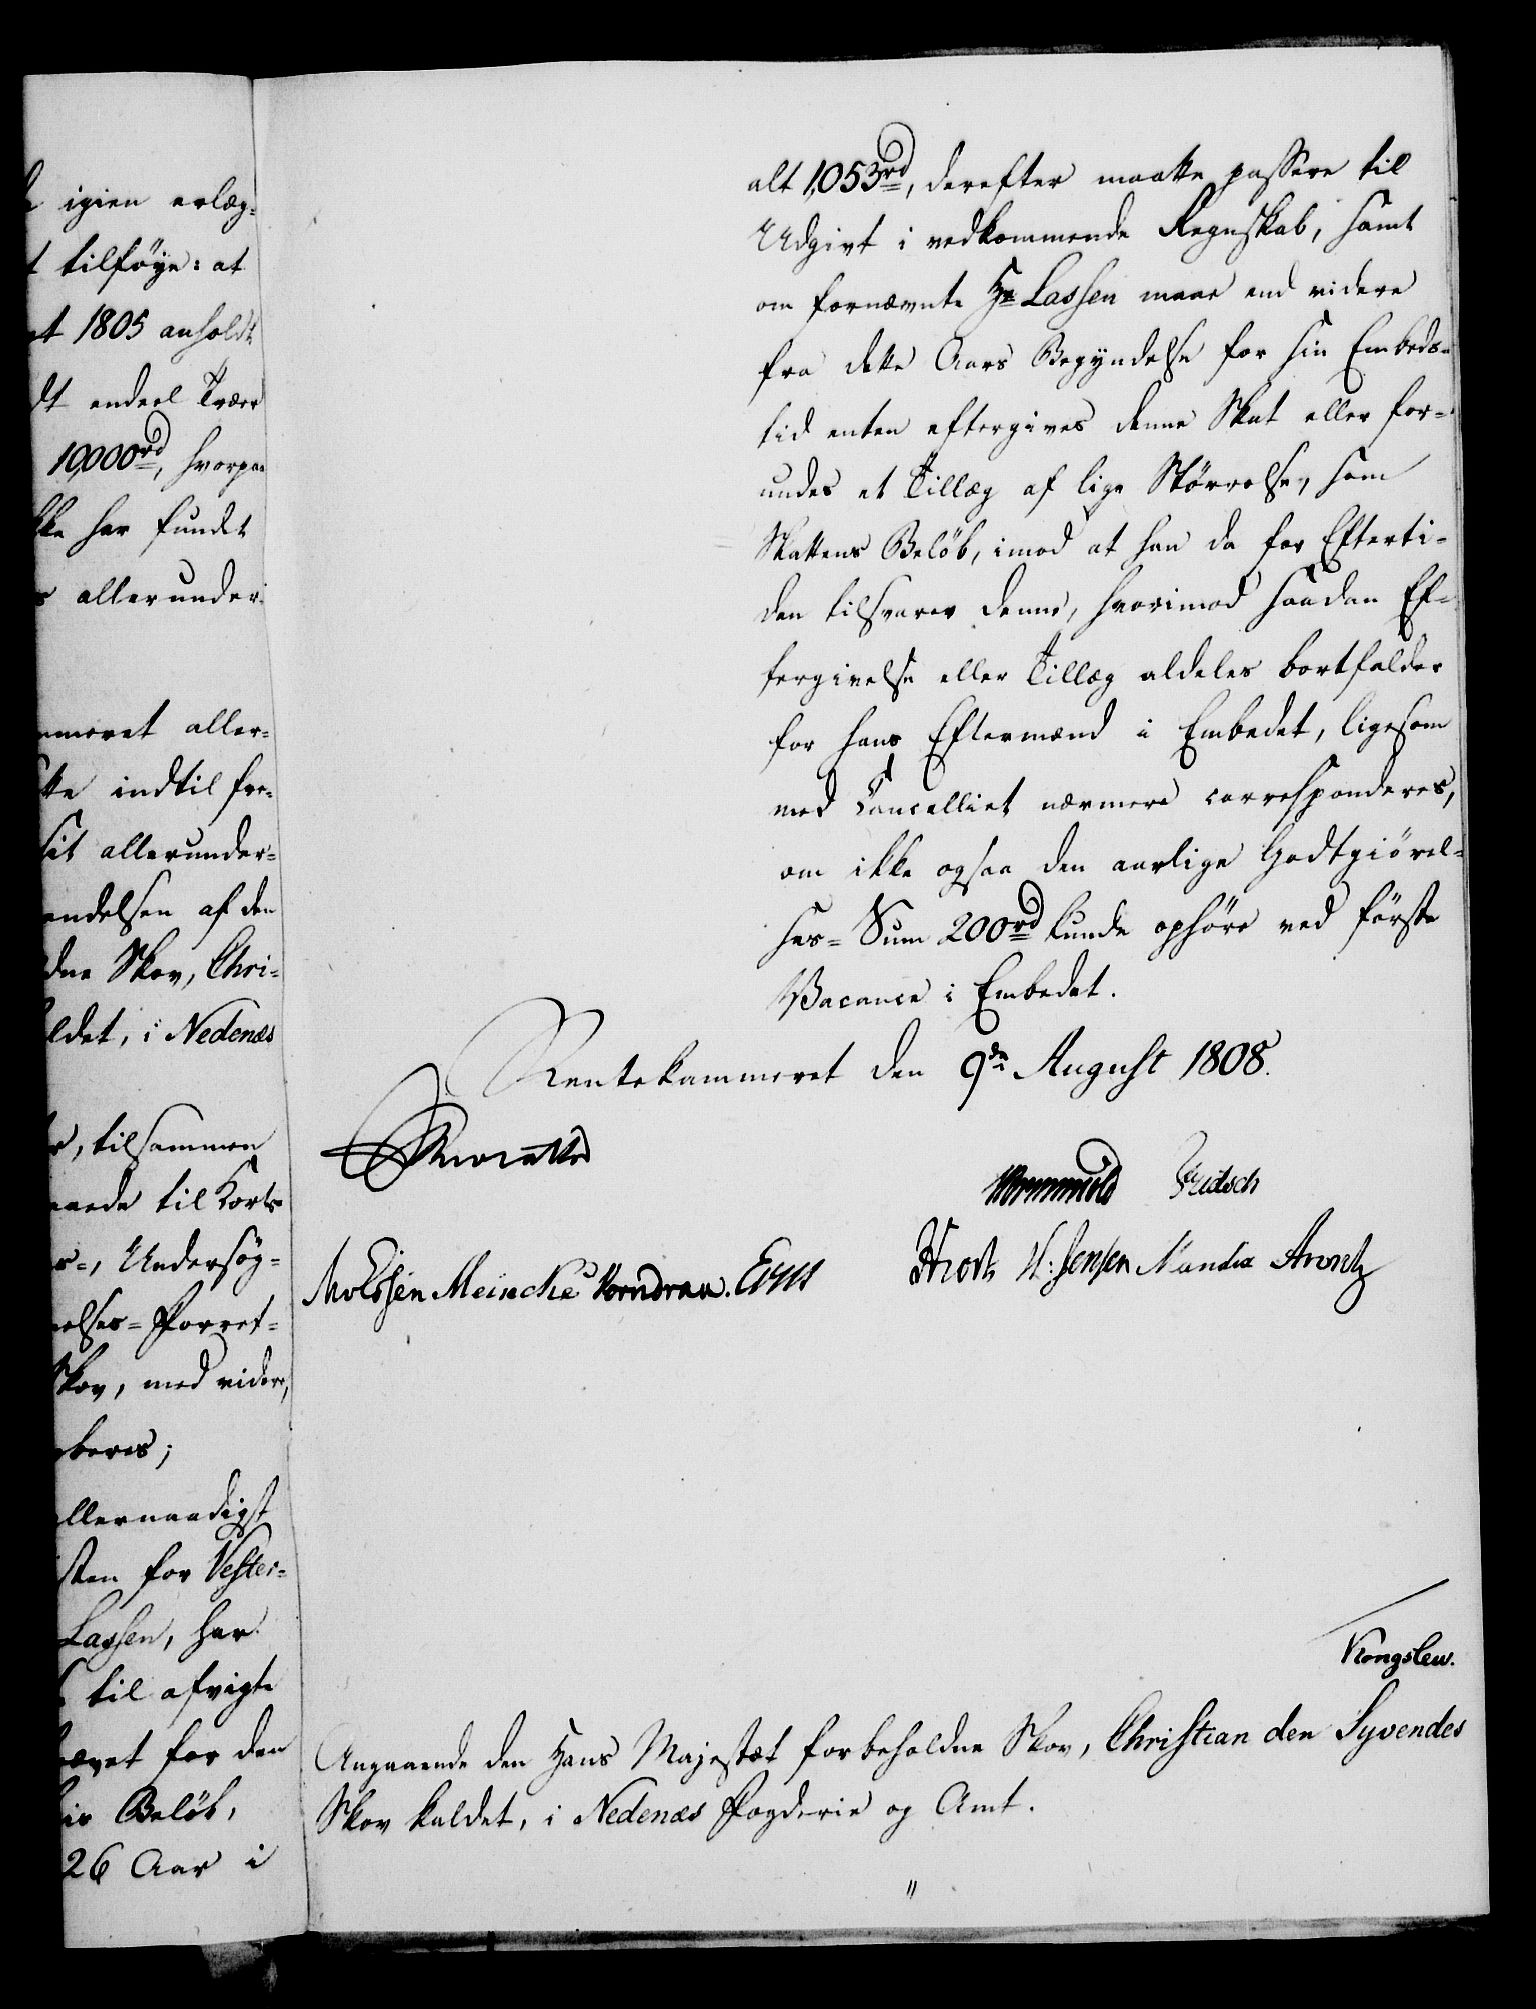 igien erlæg-
t tilføye: at
et 1805 anholdt
dt endeel Tvær
10,000rd, hvorpaa
kke har fundt
allerunder-
mmeret aller-
tte indtil fre-
sit allerunder-
endelsen af den
dne Skov, Chri-
ldet, i Nedenæs
r, tilsammen
maede til Korts
s-, Undersøg-
elses-Forret-
Skov, med videre,
beres;
llernaadigst
sten for Vester-
Lassen, har
til afvigte
ævet for den
Beløb,
26 Aar i
alt 1,053rd, derefter maatte passere til
Udgivt i vedkommende Regnskab, samt
om fornævnte Hr Lassen maae end videre
fra dette Aars Begyndelse for sin Embeds-
tid enten eftergives denne Skat eller for-
undes et Tillæg af lige Størrelse, som
Skattens Beløb, imod at han da for Efterti-
den tilsvarer denne, hvorimod saadan Ef-
tergivelse eller Tillæg aldeles bortfalder
for hans Eftermænd i Embedet, ligesom
med Cancelliet nærmere corresponderes,
om ikke ogsaa den aarlige Godtgiørel-
ses-Sum 200rd kunde ophøre ved første
Vacance i Embedet.
Rentekammeret den 9de August 1808.
Reventlow
Wormskiold Fridsch
Knoth W: Jensen Arentz
Meincke Vorndran.
Kongslew.
Angaaende den Hans Majestæt forbeholdne Skov, Christian den Syvendes
Skov kaldet, i Nedenæs Fogderie og Amt.
"